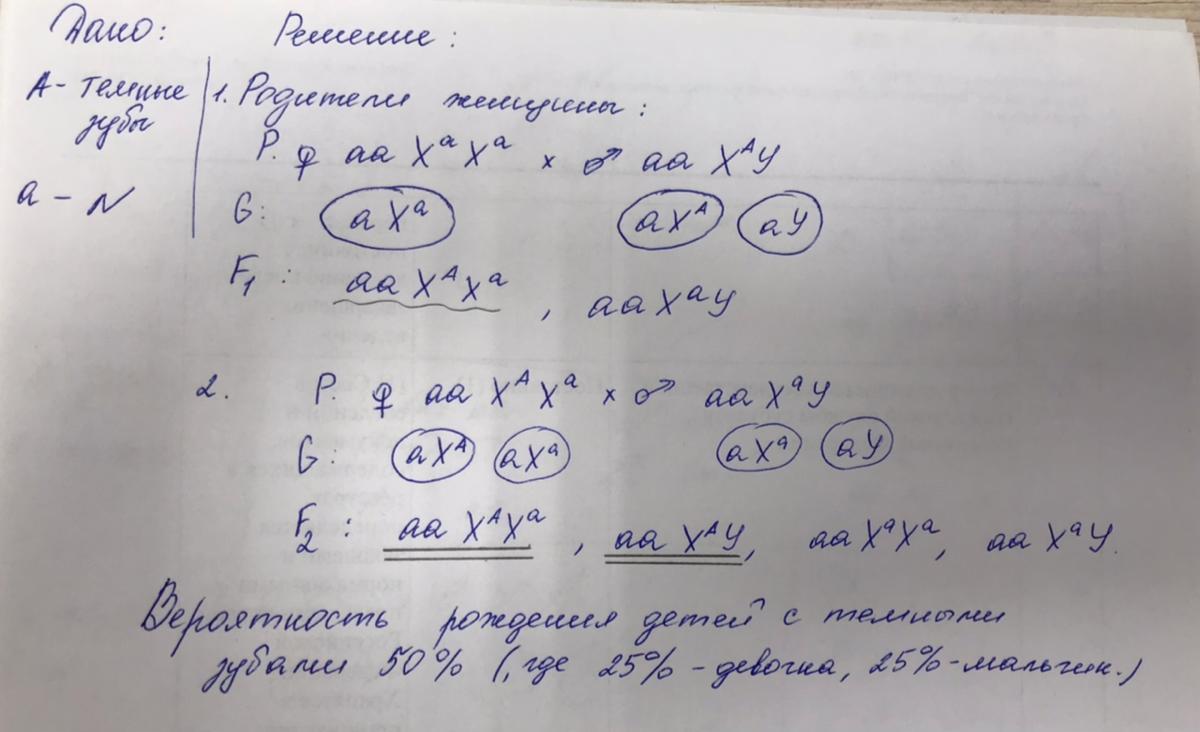 Дано: Решение:
А - темные зубы
а - N
1. Родители женщины:
P. ♀ aa XᵃXᵃ × ♂ aa XᴬY
G: aXᵃ aXᴬ aY
F₁: aa XᴬXᵃ, aa XᵃY
2. P. ♀ aa XᴬXᵃ × ♂ aa XᵃY
G: aXᴬ aXᵃ aXᵃ aY
F₂: aa XᴬXᵃ, aa XᴬY, aa XᵃXᵃ, aa XᵃY.
Вероятность рождения детей с темными
зубами 50% (, где 25% - девочка, 25% - мальчик.)